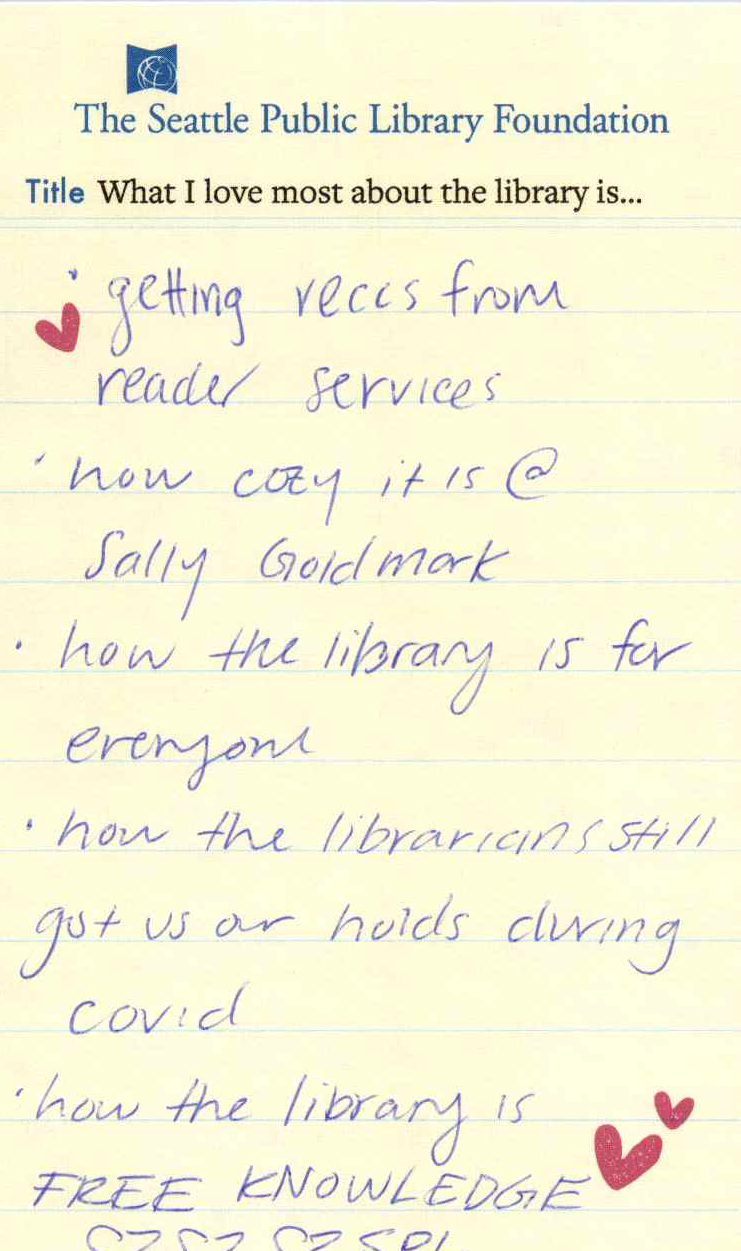 The Seattle Public Library Foundation
Title What I love most about the library is...
· getting reccs from
reader services
· how cozy it is @
Sally Goldmark
· how the library is for
everyone
· how the librarians still
got us our holds during
covid
· how the library is
FREE KNOWLEDGE
SPL